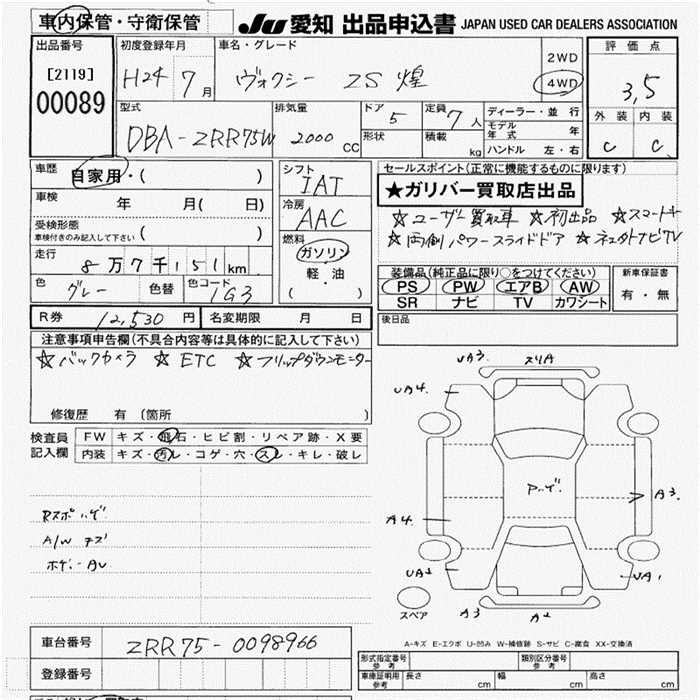 車内保管・守衛保管 JU 愛知 出品申込書 JAPAN USED CAR DEALERS ASSOCIATION
出品番号 初度登録年月 車名・グレード 評価点
[2119] H24 7月 ヴォクシー ZS 煌 2WD 4WD 3,5
00089
型式 排気量 ドア 5 定員 7人 ディーラー・並行 外装 内装
DBA-ZRR75W 2000 CC 形状 積載 kg モデル年式 年 C C
ハンドル 左・右
車歴 自家用・( ) シフト IAT セールスポイント(正常に機能するものに限ります)
★ガリバー買取店出品
車検 年 月( 日) 冷房 AAC ☆ユーザー買取車 ☆初出品 ☆スマートキー
受検形態 車検付きのみ記入して下さい ( ) ☆両側パワースライドドア
走行 8万7千151km 燃料 ガソリン 軽・油 ( )
装備品(純正品に限り○をつけてください) 新車保証書
色 グレー 色替 色コード 1G3 PS PW エアB AW 有・無
SR ナビ TV カワシート
R券 12,530円 名変期限 月 日 後日品
注意事項申告欄(不具合内容等は具体的に記入して下さい)
☆バックカメラ ☆ETC ☆フリップダウンモニター
修復歴 有(箇所 )
検査員記入欄 FW キズ・飛石・ヒビ割・リペア跡・X要
内装 キズ・汚レ・コゲ・穴・スレ・キレ・破レ
A/W キズ
UA3.
UA4.
A3.
A4.
UA1
A3
A2
スペア
A-キズ E-エクボ U-凹み W-補修跡 S-サビ C-腐食 XX-交換済
車台番号 ZRR75-0098966
登録番号
形式指定番号 参考 類別区分番号 参考
車庫証明用 参考 長さ cm 幅 cm 高さ cm